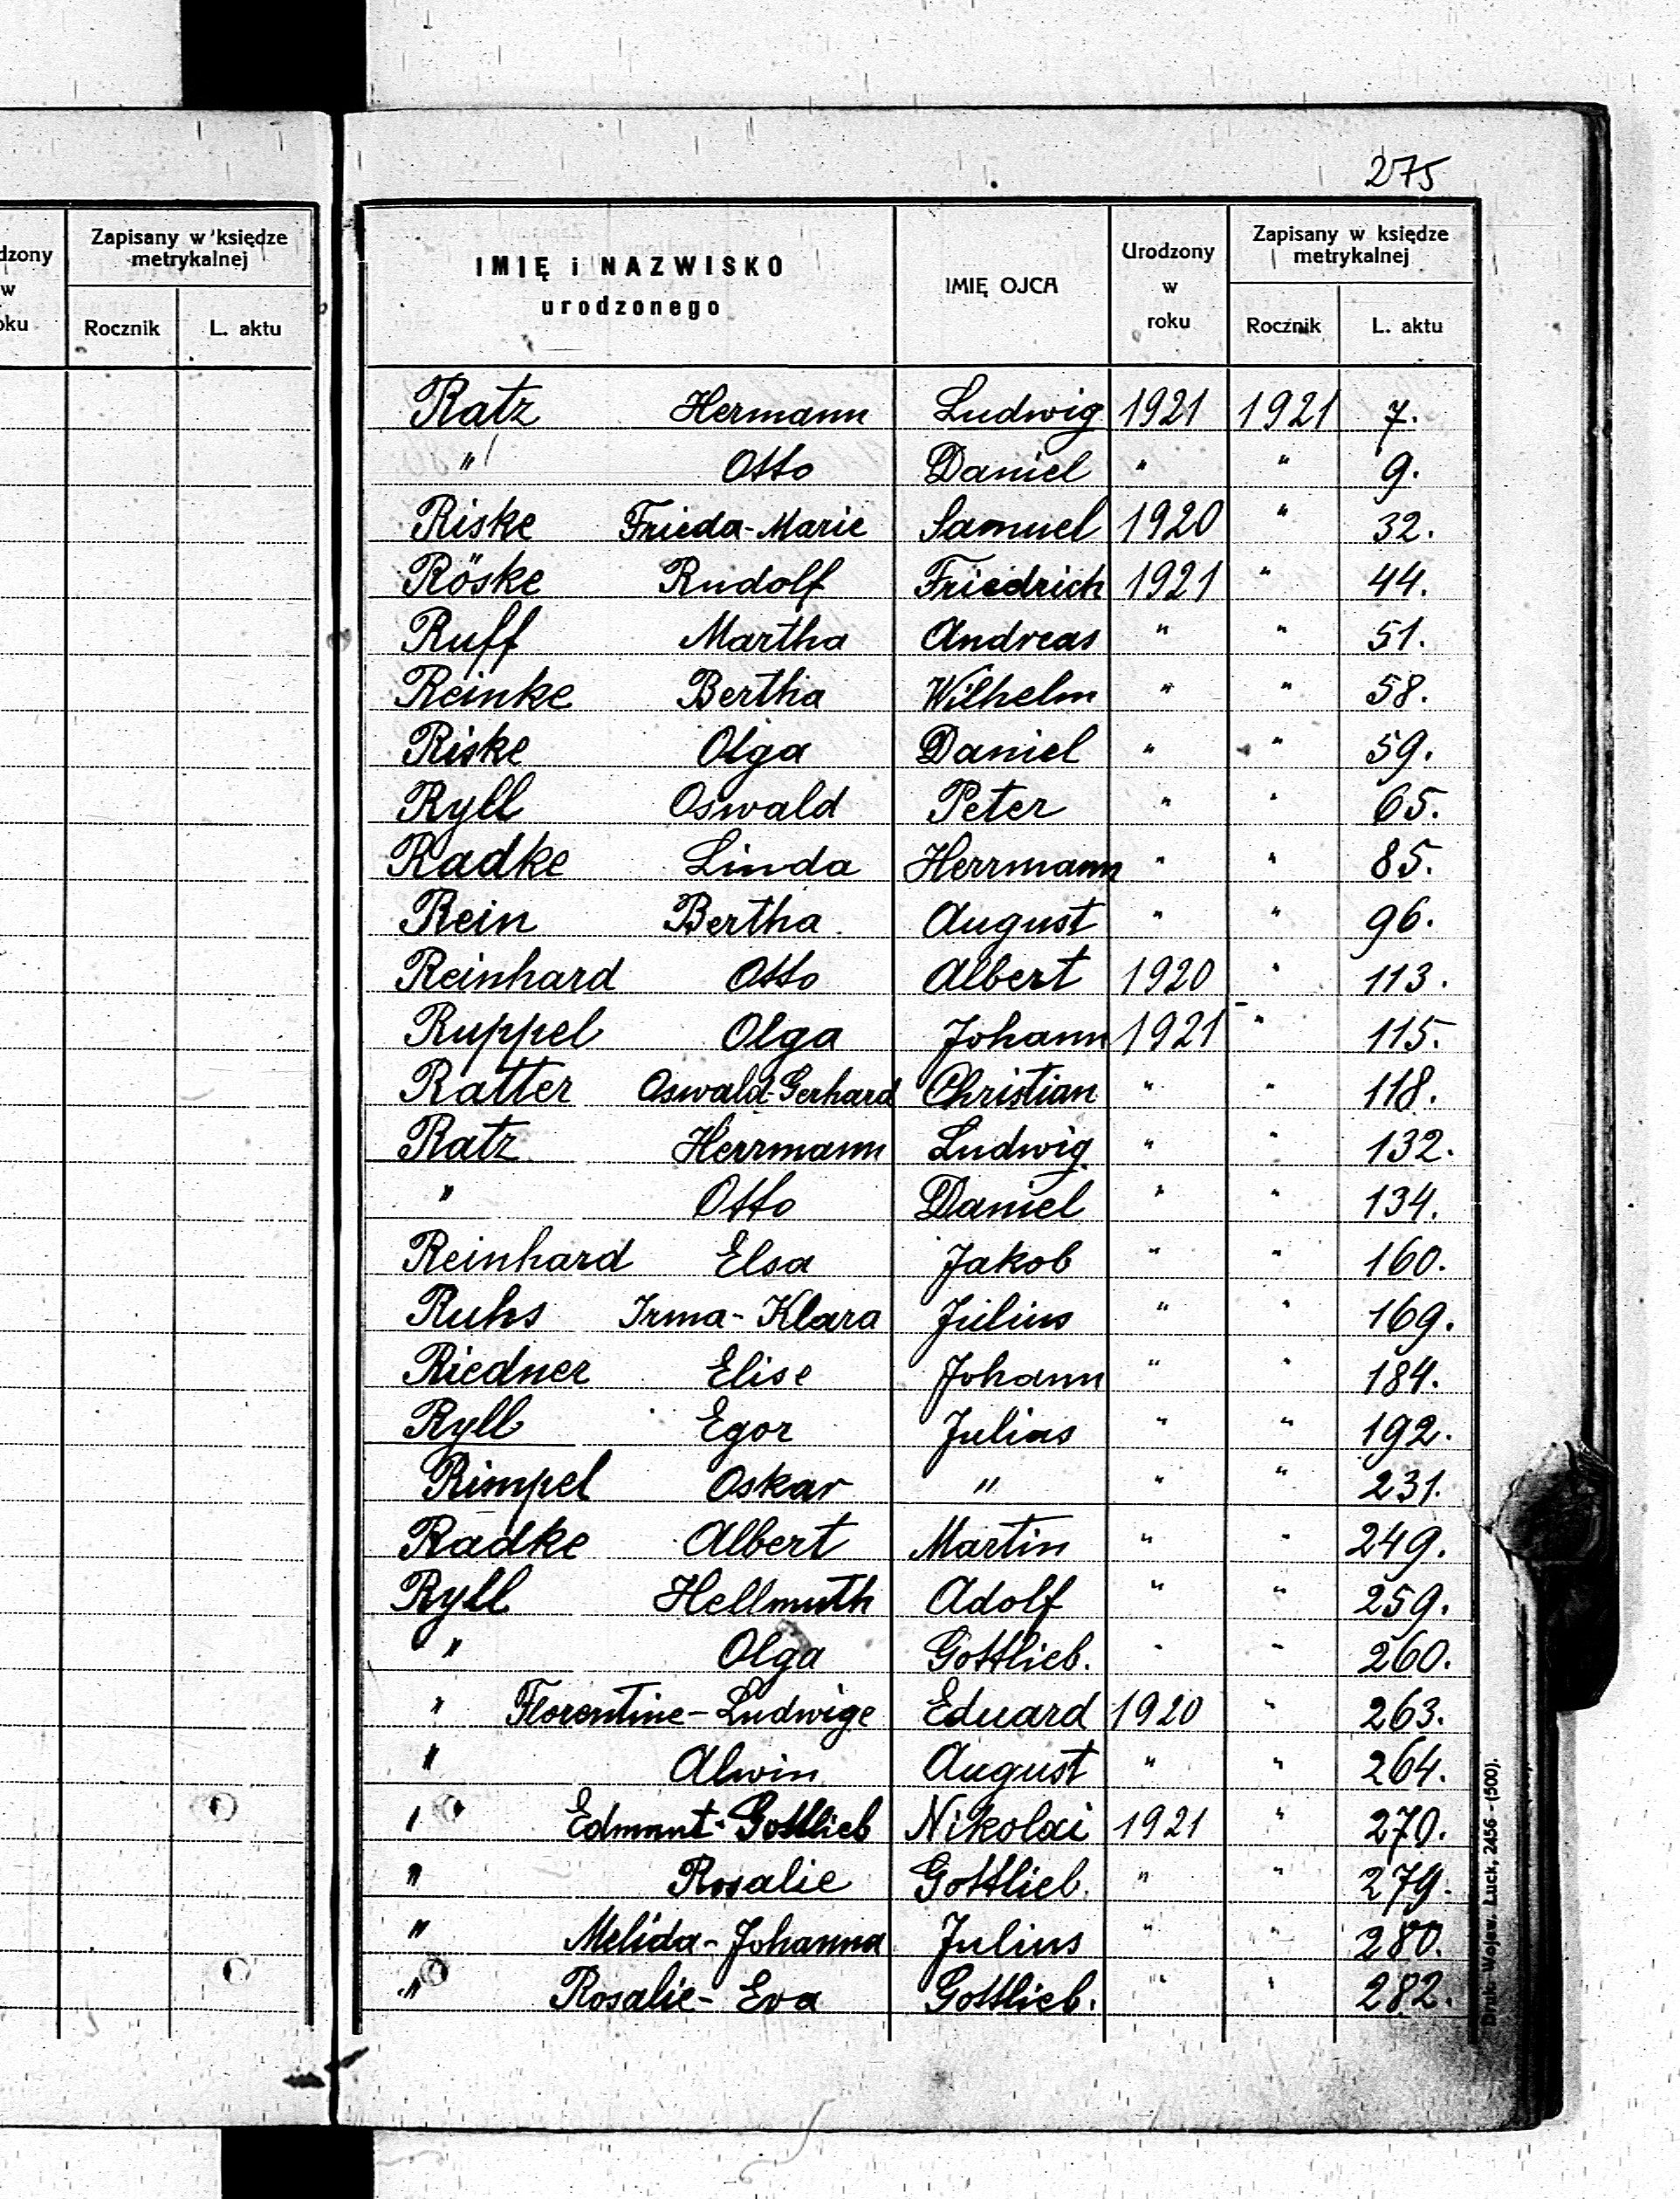 275
dzony
w
oku
Zapisany w księdze
metrykalnej
Rocznik
L. aktu
IMIĘ i NAZWISKO
urodzonego
IMIĘ OJCA
Urodzony
w
roku
Zapisany w księdze
metrykalnej
Rocznik
L. aktu
Ratz Hermann Ludwig 1921 1921 7.
" Otto Daniel " " 9.
Riske Frieda-Marie Samuel 1920 " 32.
Röske Rudolf Friedrich 1921 " 44.
Ruff Martha Andreas " " 51.
Reinke Bertha Wilhelm " " 58.
Riske Olga Daniel " " 59.
Ryll Oswald Peter " " 65.
Radke Linda Herrmann " " 85.
Rein Bertha August " " 96.
Reinhard Otto Albert 1920 " 113.
Ruppel Olga Johann 1921 " 115.
Ratter Oswald-Gerhard Christian " " 118.
Ratz Herrmann Ludwig " " 132.
" Otto Daniel " " 134.
Reinhard Elsa Jakob " " 160.
Ruhs Irma-Klara Julius " " 169.
Riedner Elise Johann " " 184.
Ryll Egor Julius " " 192.
Rimpel Oskar " " " 231.
Radke Albert Martin " " 249.
Ryll Hellmuth Adolf " " 259.
" Olga Gottlieb. " " 260.
" Florentine-Ludwige Eduard 1920 " 263.
" Alwin August " " 264.
" Edmunt-Gottlieb Nikolai 1921 " 270.
" Rosalie Gottlieb. " " 279.
" Melida-Johanna Julius " " 280.
" Rosalie-Eva Gottlieb. " " 282.
Druk. Wojew. Łuck, 2456 - (500).